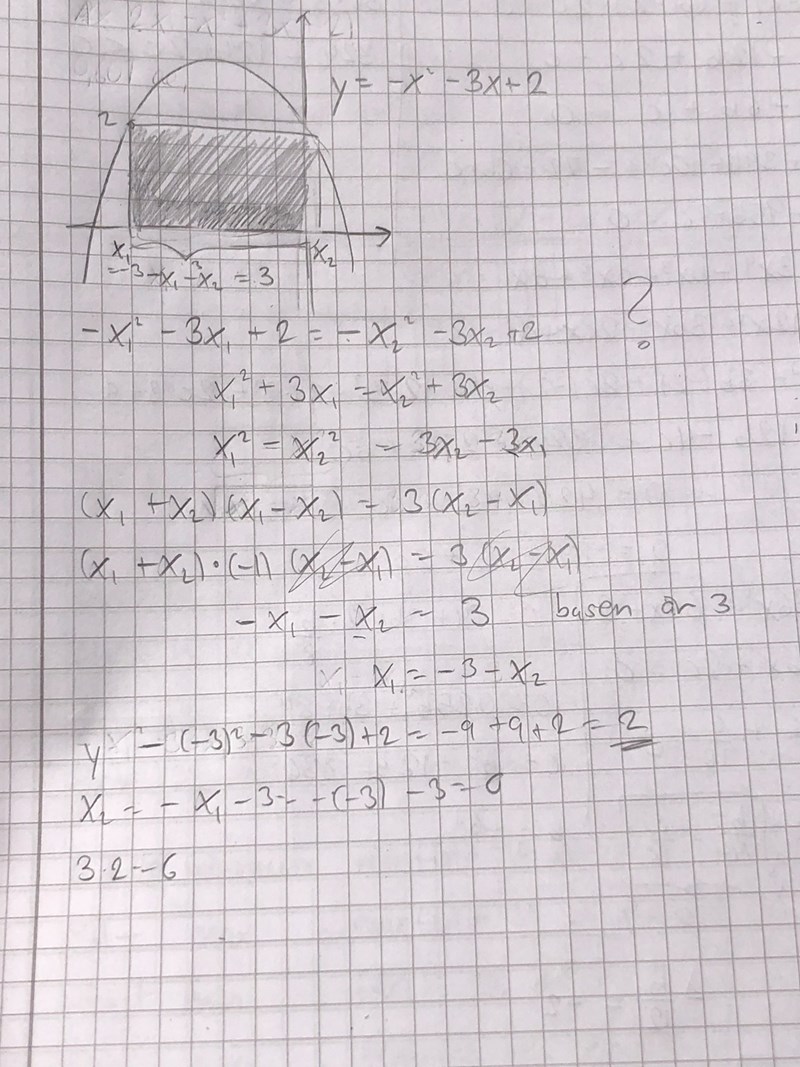 y = -x² - 3x + 2
2
x₁ x₂
= -3 - x₁ - x₂ = 3
-x₁² - 3x₁ + 2 = -x₂² - 3x₂ + 2 ?
x₁² + 3x₁ = x₂² + 3x₂
x₁² = x₂² = 3x₂ - 3x₁
(x₁ + x₂)(x₁ - x₂) = 3(x₂ - x₁)
(x₁ + x₂)·(-1)(x₂ - x₁) = 3(x₂ - x₁)
-x₁ - x₂ = 3 basen är 3
x₁ = -3 - x₂
y = -(-3)² - 3(-3) + 2 = -9 + 9 + 2 = 2
x₂ = -x₁ - 3 = -(-3) - 3 = 0
3·2 = 6